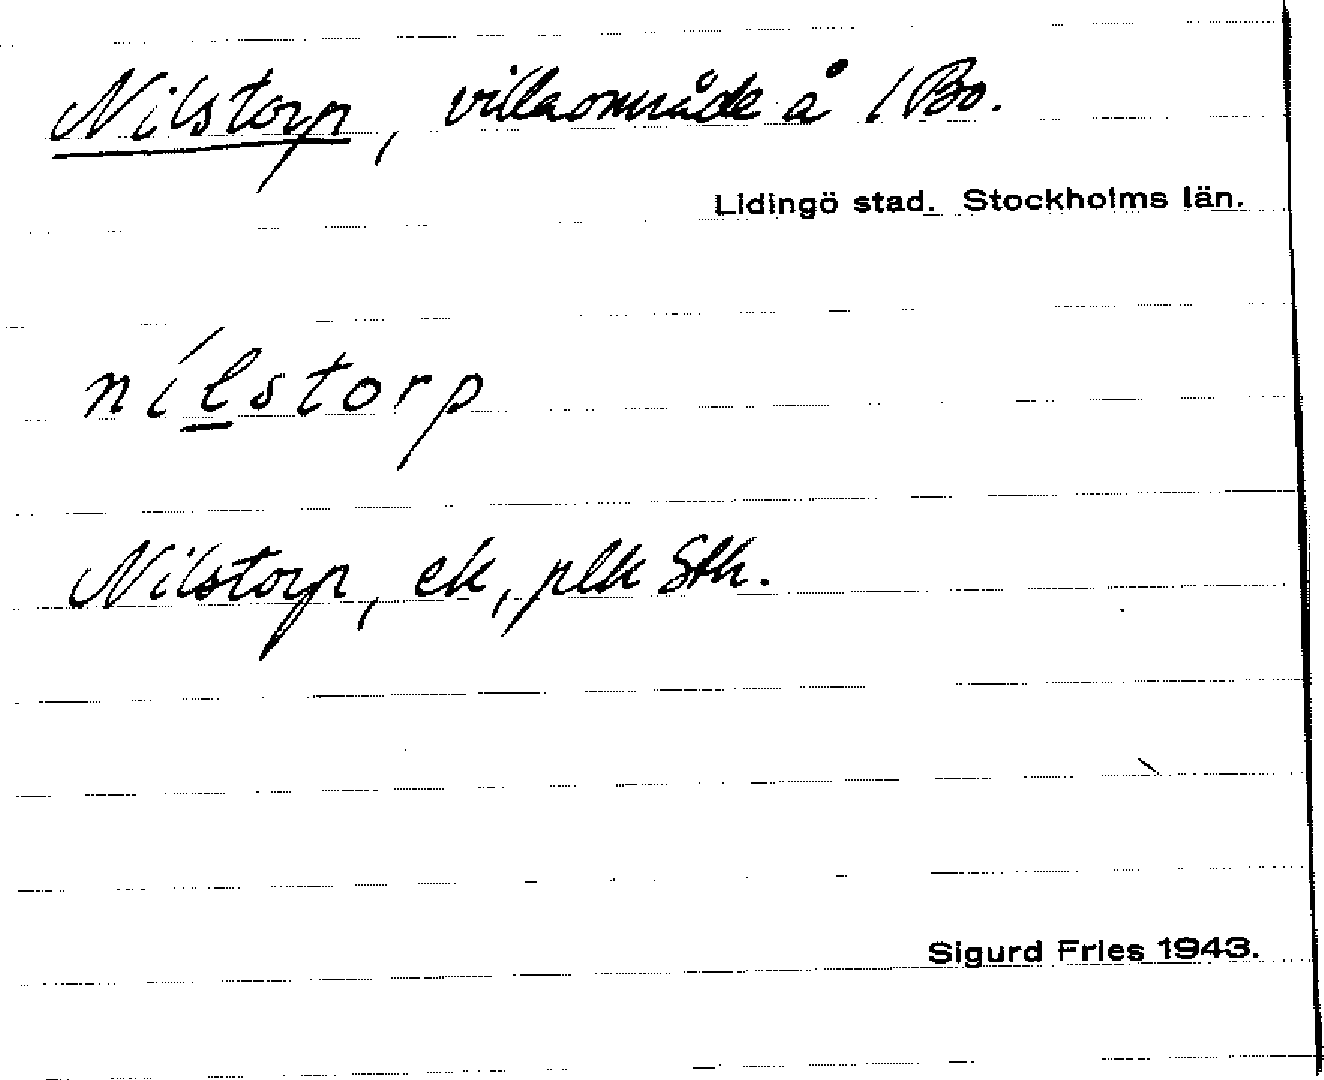 Nilstorp, villaområde å 1 Bo.
Lidingö stad. Stockholms län.
nílstorp
Nilstorp, ek, plk Sth.
Sigurd Fries 1943.